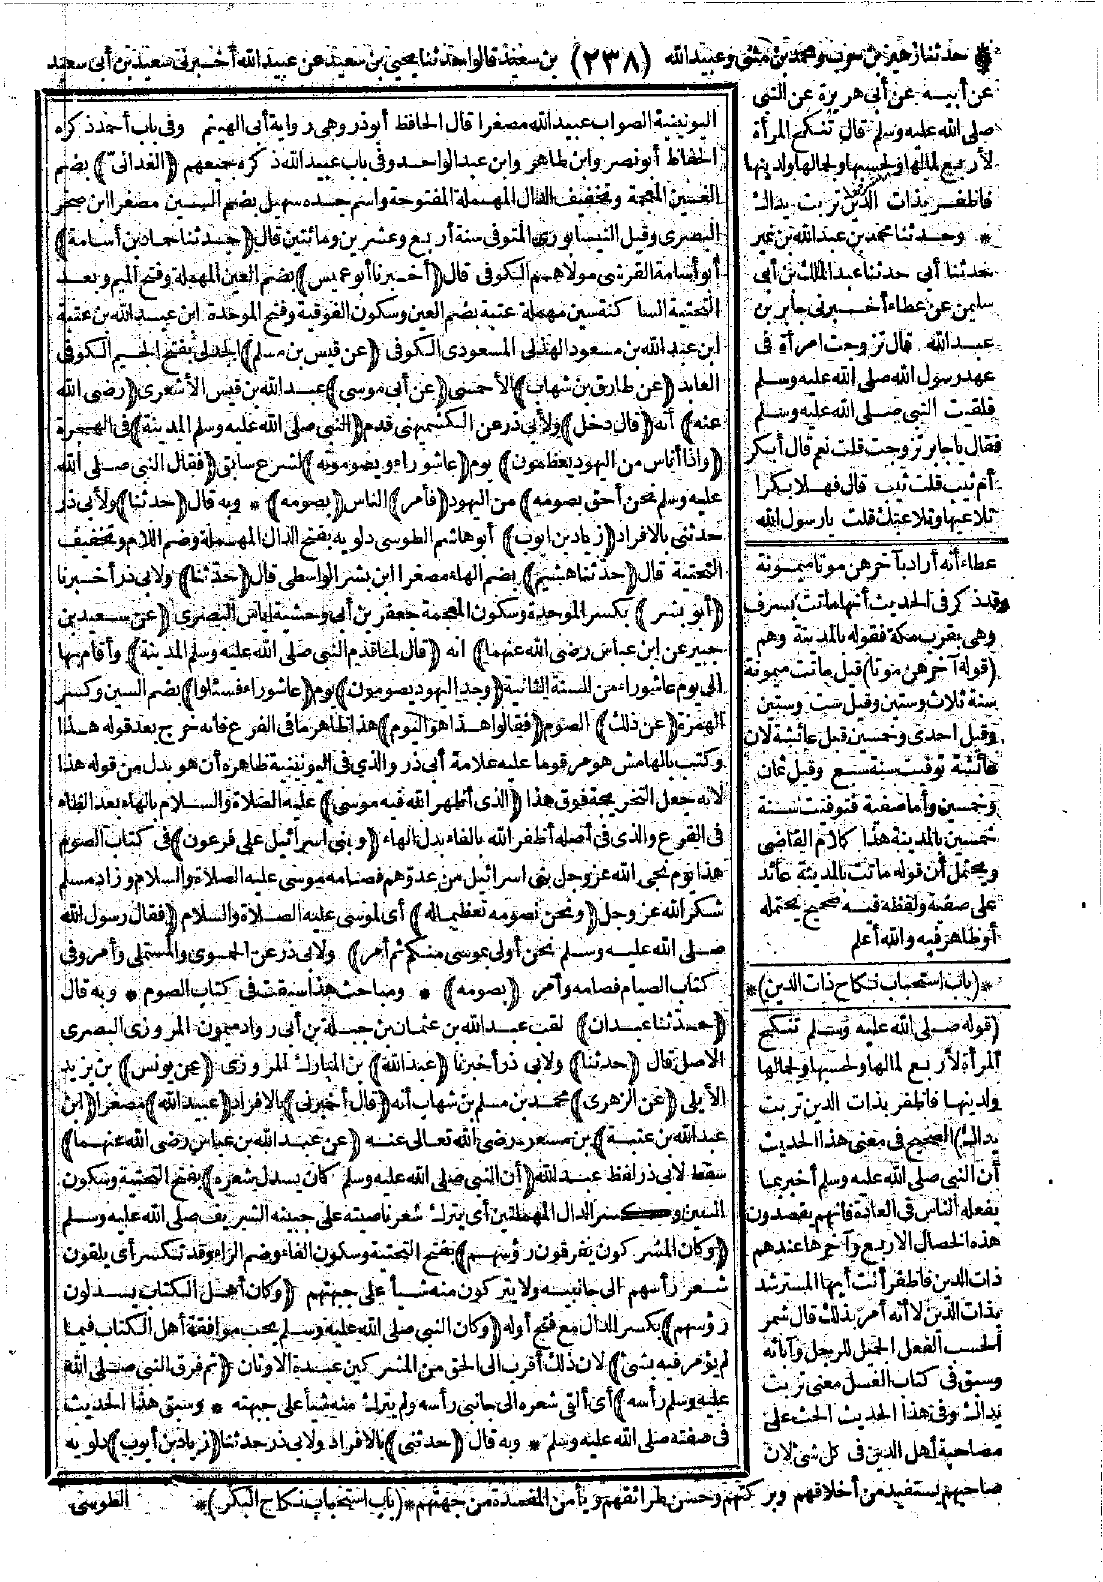 * حدثنا زهير بن حرب ومحمد بن مثنى وعبيد الله (٢٣٨) بن سعيد قالوا حدثنا يحيى بن سعيد عن عبيد الله أخبرنى سعيد بن أبى سعيد
عن أبيه عن أبى هريرة عن النبى
صلى الله عليه وسلم قال تنكح المرأة
لأربع لمالها ولحسبها ولجمالها ولدينها
فاظفر بذات الدين تربت يداك
* وحدثنا محمد بن عبد الله بن نمير
حدثنا أبى حدثنا عبد الملك بن أبى
سليمن عن عطاء أخبرنى جابر بن
عبد الله قال تزوجت امرأة فى
عهد رسول الله صلى الله عليه وسلم
فلقيت النبى صلى الله عليه وسلم
فقال يا جابر تزوجت قلت نعم قال أبكر
أم ثيب قلت ثيب قال فهلا بكرا
تلاعبها وتلاعبك قلت يا رسول الله
عطاء أنه أراد بآخرهن موتا ميمونة
وقد ذكر فى الحديث أنها ماتت بسرف
وهى بقرب مكة فقوله بالمدينة وهم
(قوله آخرهن موتا) قيل ماتت ميمونة
سنة ثلاث وستين وقيل ست وستين
وقيل احدى وخمسين قبل عائشة لان
عائشة توفيت سنة سبع وقيل ثمان
وخمسين وأما صفية فتوفيت سنة
خمسين بالمدينة هذا كلام القاضى
ويحتمل أن قوله ماتت بالمدينة عائد
على صفية ولفظه فيه صحيح يحتمله
أو ظاهر فيه والله أعلم
*(باب استحباب نكاح ذات الدين)*
(قوله صلى الله عليه وسلم تنكح
المرأة لأربع لمالها ولحسبها ولجمالها
ولدينها فاظفر بذات الدين تربت
يداك) الصحيح فى معنى هذا الحديث
أن النبى صلى الله عليه وسلم أخبر بما
يفعله الناس فى العادة فانهم يقصدون
هذه الخصال الاربع وآخرها عندهم
ذات الدين فاظفر أنت أيها المسترشد
بذات الدين لا أنه أمر بذلك قال شمر
الحسب الفعل الجميل للرجل وآبائه
وسبق فى كتاب الغسل معنى تربت
يداك وفى هذا الحديث الحث على
مصاحبة أهل الدين فى كل شئ لان
صاحبهم يستفيد من أخلاقهم وبركتهم وحسن طرائقهم ويأمن المفسدة من جهتهم *(باب استحباب نكاح البكر)*
اليونينية الصواب عبيد الله مصغرا قال الحافظ أبو ذر وهى رواية أبى الهيثم وفى باب أحمد ذكره
الحفاظ أبو نصر وابن طاهر وابن عبد الواحد وفى باب عبيد الله ذكره جميعهم (الغدانى) بضم
الغين المعجمة وتخفيف الدال المهملة المفتوحة واسم جده سهيل بضم السين مصغرا ابن صخر
البصرى وقيل النيسابورى المتوفى سنة أربع وعشرين ومائتين قال (حدثنا حماد بن أسامة)
أبو أسامة القرشى مولاهم الكوفى قال (أخبرنا أبو عميس) بضم العين المهملة وفتح الميم وبعد
التحتية الساكنة سين مهملة عتبة بضم العين وسكون الفوقية وفتح الموحدة ابن عبد الله بن عتبة
ابن عبد الله بن مسعود الهذلى المسعودى الكوفى (عن قيس بن مسلم) الجدلى بفتح الجيم الكوفى
العابد (عن طارق بن شهاب) الأحمسى (عن أبى موسى) عبد الله بن قيس الأشعرى (رضى الله
عنه) أنه (قال دخل) ولأبى ذر عن الكشميهنى قدم (النبى صلى الله عليه وسلم المدينة) فى الهجرة
(واذا أناس من اليهود يعظمون) يوم (عاشوراء ويصومونه) لشرع سابق (فقال النبى صلى الله
عليه وسلم نحن أحق بصومه) من اليهود (فأمر) الناس (بصومه) * وبه قال (حدثنا) ولأبى ذر
حدثنى بالافراد (زياد بن ايوب) أبو هاشم الطوسى دلويه بفتح الدال المهملة وضم اللام وتخفيف
التحتية قال (حدثنا هشيم) بضم الهاء مصغرا ابن بشر الواسطى قال (حدثنا) ولابى ذر أخبرنا
(أبو بشر) بكسر الموحدة وسكون المعجمة جعفر بن أبى وحشية اياس البصرى (عن سعيد بن
جبير عن ابن عباس رضى الله عنهما) انه (قال لما قدم النبى صلى الله عليه وسلم المدينة) وأقام بها
الى يوم عاشوراء من السنة الثانية (وجد اليهود يصومون) يوم (عاشوراء فسئلوا) بضم السين وكسر
الهمزة (عن ذلك) الصوم (فقالوا هذا هو اليوم) هذا ظاهر ما فى الفرع فانه خرج بعد قوله هذا
وكتب بالهامش هو مرقوما عليه علامة أبى ذر والذى فى اليونينية ظاهره أن هو بدل من قوله هذا
لانه جعل التخريجة فوق هذا (الذى أظهر الله فيه موسى) عليه الصلاة والسلام بالهاء بعد الظاء
فى الفرع والذى فى أصله أظفر الله بالفاء بدل الهاء (وبنى اسرائيل على فرعون) فى كتاب الصوم
هذا يوم نجى الله عز وجل بنى اسرائيل من عدوهم فصامه موسى عليه الصلاة والسلام وزاد مسلم
شكر الله عز وجل (ونحن نصومه تعظيما له) أى لموسى عليه الصلاة والسلام (فقال رسول الله
صلى الله عليه وسلم نحن أولى بموسى منكم ثم أمر) ولابى ذر عن الحموى والمستملى وأمر وفى
كتاب الصيام فصامه وأمر (بصومه) * ومباحث هذا سبقت فى كتاب الصوم * وبه قال
(حدثنا عبدان) لقب عبد الله بن عثمان بن جبلة بن أبى رواد ميمون المروزى البصرى
الاصل قال (حدثنا) ولابى ذر أخبرنا (عبد الله) بن المبارك المروزى (عن يونس) بن يزيد
الأيلى (عن الزهرى) محمد بن مسلم بن شهاب أنه (قال أخبرنى) بالافراد (عبيد الله) مصغرا (ابن
عبد الله بن عتبة) بن مسعود رضى الله تعالى عنه (عن عبد الله بن عباس رضى الله عنهما)
سقط لابى ذر لفظ عبد الله (أن النبى صلى الله عليه وسلم كان يسدل شعره) بفتح التحتية وسكون
السين وكسر الدال المهملتين أى يترك شعر ناصيته على جبينه الشريف صلى الله عليه وسلم
(وكان المشركون يفرقون رؤسهم) بفتح التحتية وسكون الفاء وضم الراء وقد تكسر أى يلقون
شعر رأسهم الى جانبيه ولا يتركون منه شيأ على جبهتهم (وكان أهل الكتاب يسدلون
رؤسهم) بكسر الدال مع فتح أوله (وكان النبى صلى الله عليه وسلم يحب موافقة أهل الكتاب فيما
لم يؤمر فيه بشئ) لان ذلك أقرب الى الحق من المشركين عبدة الاوثان (ثم فرق النبى صلى الله
عليه وسلم رأسه) أى ألقى شعره الى جانبى رأسه ولم يترك منه شيأ على جبهته * وسبق هذا الحديث
فى صفته صلى الله عليه وسلم * وبه قال (حدثنى) بالافراد ولابى ذر حدثنا (زياد بن أيوب) دلويه
الطوسى